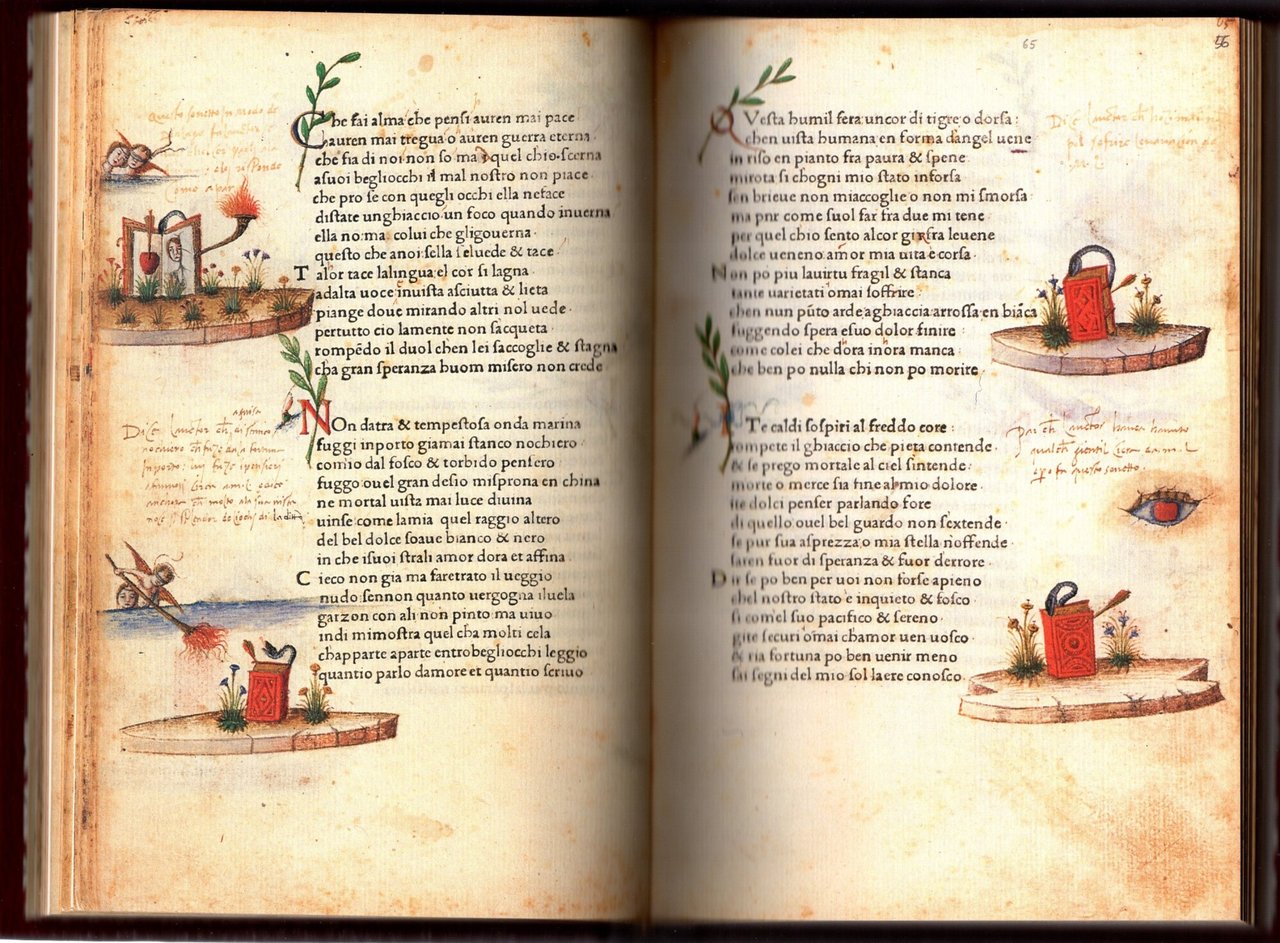 Che fai alma che pensi auren mai pace
Lauren mai tregua o auren guerra eterna
che fia di noi non so ma quel chio scerna
asuoi begliocchi il mal nostro non piace
che pro se con quegli occhi ella neface
distate unghiaccio un foco quando inuerna
ella no ma colui che gligouerna
questo che anoi sella seluede & tace
Talor tace lalingua el cor si lagna
adalta uoce inuista asciutta & lieta
piange doue mirando altri nol uede
pertutto cio lamente non sacqueta
rompēdo il duol chen lei saccoglie & stagna
cha gran speranza huom misero non crede
NOn datra & tempestosa onda marina
fuggi inporto giamai stanco nochiero
comio dal fosco & torbido pensero
fuggo ouel gran desio misprona en china
ne mortal uista mai luce diuina
uinse come lamia quel raggio altero
del bel dolce soaue bianco & nero
in che isuoi strali amor dora et affina
Cieco non gia ma faretrato il ueggio
nudo sennon quanto uergogna iluela
garzon con ali non pinto ma uiuo
indi mimostra quel cha molti cela
chapparte aparte entrobegliocchi leggio
quantio parlo damore et quantio scriuo
65
56
QVesta humil fera uncor di tigre o dorsa
chen uista humana en forma dangel uene
in riso en pianto fra paura & spene
mirota si chogni mio stato inforsa
sen brieue non miaccoglie o non mi smorsa
ma pur come suol far fra due mi tene
per quel chio sento alcor gir fra leuene
dolce ueneno amor mia uita e corsa
Non po piu lauirtu fragil & stanca
tante uarietati omai soffrire
chen nun pūto arde aghiaccia arrossa en biāca
fuggendo spera esuo dolor finire
come colei che dora inora manca
che ben po nulla chi non po morire
ITe caldi sospiri al freddo core
rompete il ghiaccio che pieta contende
& se prego mortale al ciel sintende
morte o merce sia fine al mio dolore
ite dolci penser parlando fore
di quello ouel bel guardo non sextende
se pur sua asprezza o mia stella noffende
saren fuor di speranza & fuor derrore
Dir se po ben per uoi non forse apieno
chel nostro stato e inquieto & fosco
si comel suo pacifico & sereno
gite securi omai chamor uen uosco
& ria fortuna po ben uenir meno
sai segni del mio sol laere conosco